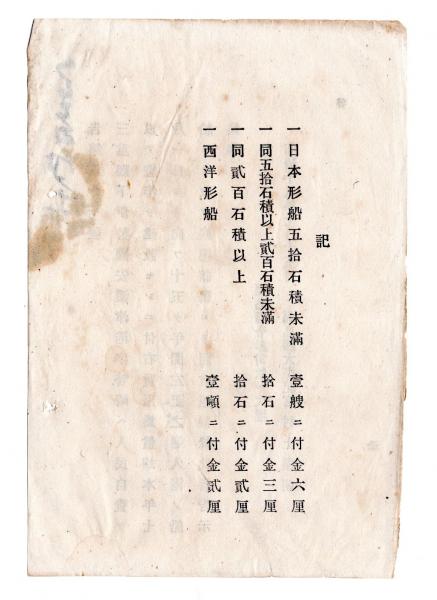 記
一日本形船五拾石積未滿　壹艘ニ付金六厘
一同五拾石積以上貳百石積未滿　拾石ニ付金三厘
一同貳百石積以上　拾石ニ付金貳厘
一西洋形船　壹噸ニ付金貳厘